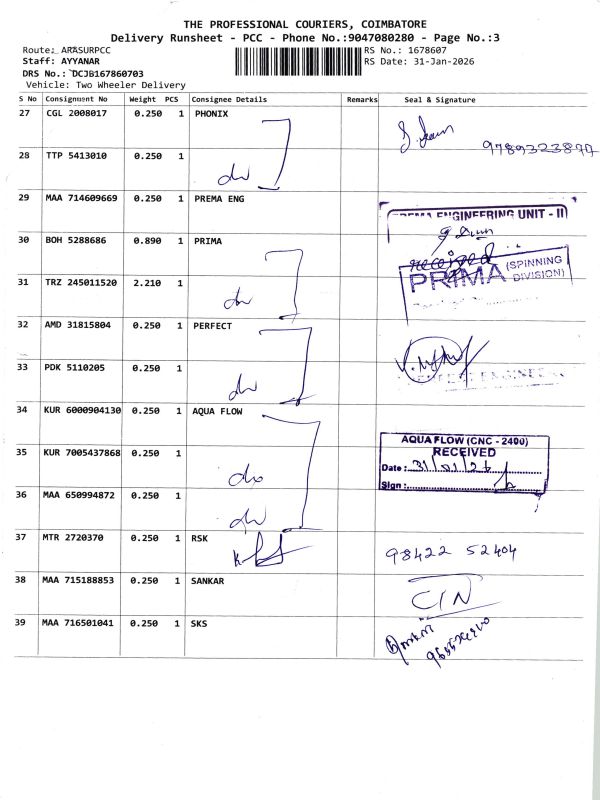 THE PROFESSIONAL COURIERS, COIMBATORE
Delivery Runsheet - PCC - Phone No.:9047080280 - Page No.:3
Route: ARASURPCC
RS No.: 1678607
Staff: AYYANAR
RS Date: 31-Jan-2026
DRS No.: DCJB167860703
Vehicle: Two Wheeler Delivery
S No Consignment No Weight PCS Consignee Details Remarks Seal & Signature
27 CGL 2008017 0.250 1 PHONIX
28 TTP 5413010 0.250 1
29 MAA 714609669 0.250 1 PREMA ENG
PREMA ENGINEERING UNIT - II
30 BOH 5288686 0.890 1 PRIMA
received
PRIMA (SPINNING DIVISION)
31 TRZ 245011520 2.210 1
32 AMD 31815804 0.250 1 PERFECT
33 PDK 5110205 0.250 1
34 KUR 6000904130 0.250 1 AQUA FLOW
AQUA FLOW (CNC - 2400)
RECEIVED
Date: 31/01/26
Sign:
35 KUR 7005437868 0.250 1
36 MAA 650994872 0.250 1
37 MTR 2720370 0.250 1 RSK
98422 52404
38 MAA 715188853 0.250 1 SANKAR
39 MAA 716501041 0.250 1 SKS